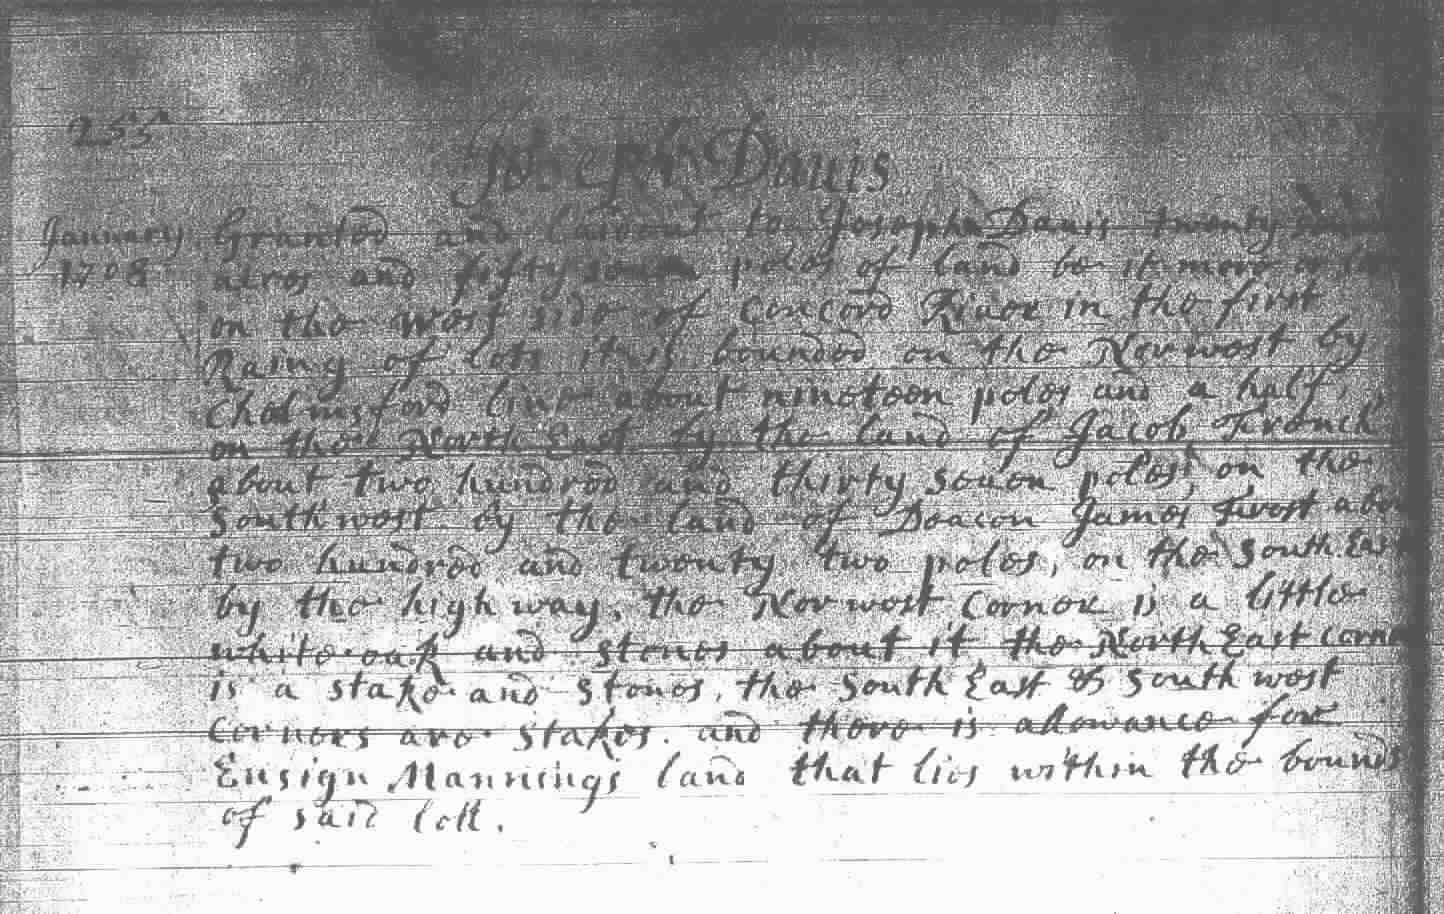 255
Joseph Dauis
January 1708
Granted and laidout to Joseph Dauis twenty
acres and fifty seuen poles of land be it more or les
on the west side of Concord Riuer in the first
Raing of lots it is bounded on the Norwest by
Chelmsford line about nineteen poles and a half,
on the North East by the land of Jacob French
about two hundred and thirty seuen poles, on the
Southwest by the land of Deacon James Frost about
two hundred and twenty two poles, on the South East
by the high way, the Norwest Corner is a little
white oak and stones about it the North East corner
is a stake and stones, the South East & South west
Corners are stakes. and there is allowance for
Ensign Mannings land that lies within the bounds
of said lott.